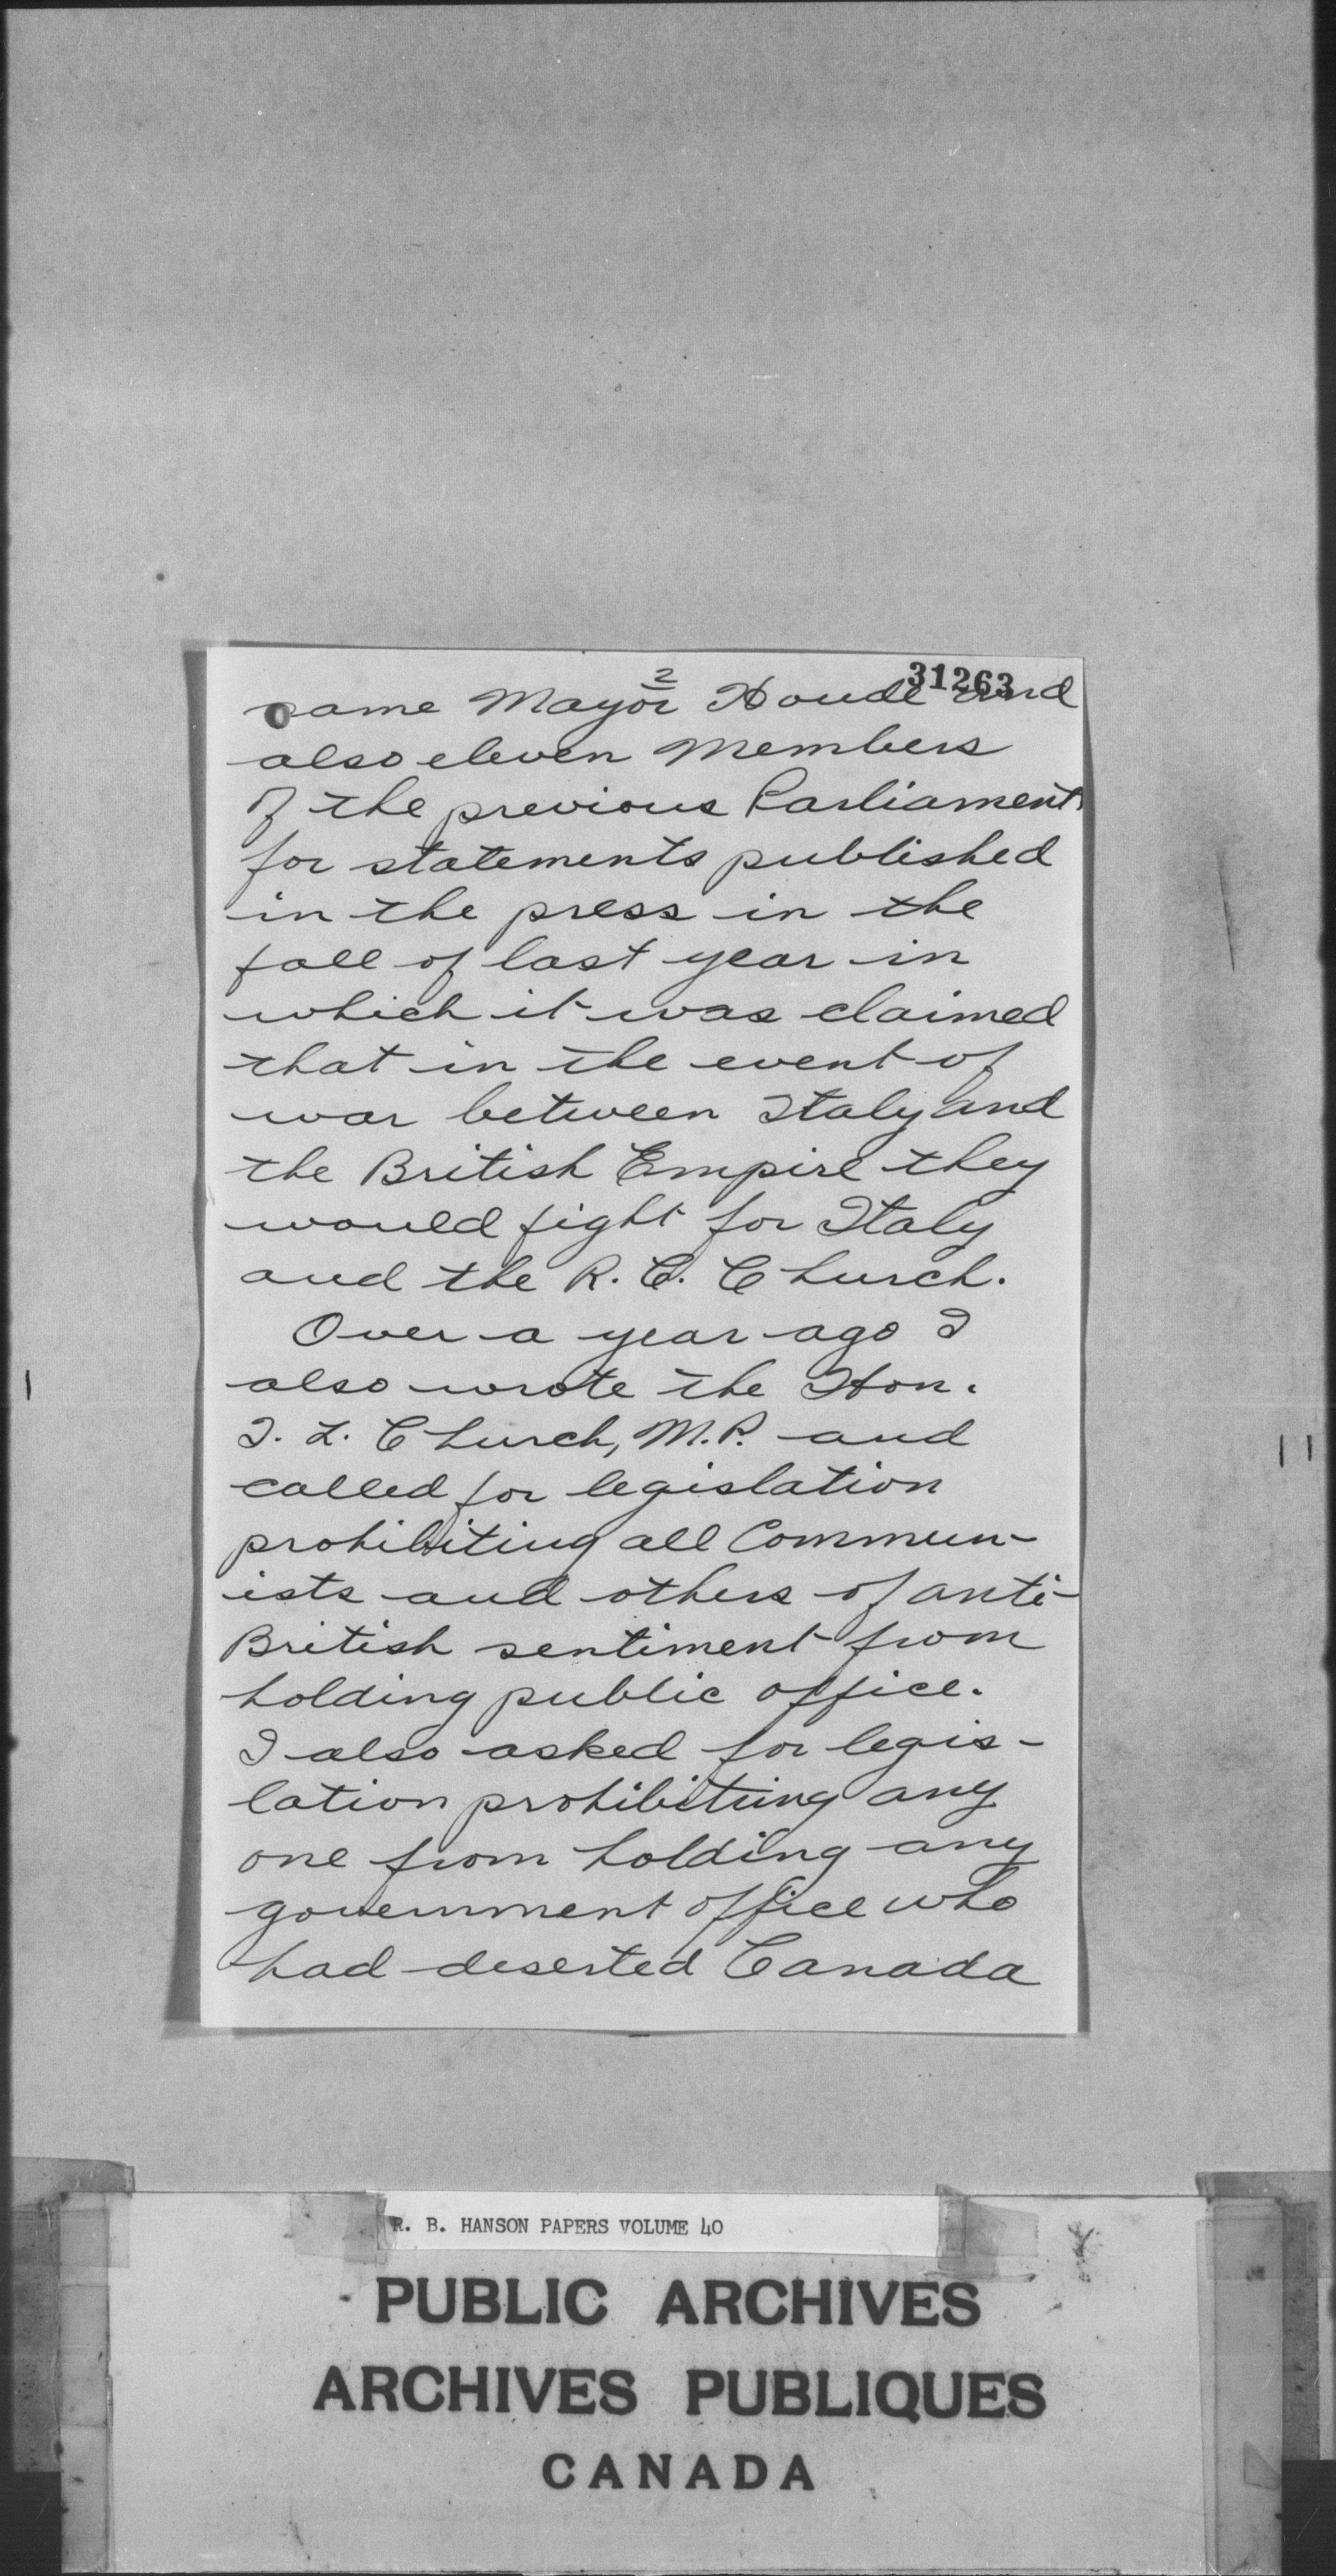 2
31263
same Mayor Houde and
also eleven Members
of the previous Parliament
for statements published
in the press in the
fall of last year in
which it was claimed
that in the event of
war between Italy and
the British Empire they
would fight for Italy
and the R. C. Church.
Over a year ago I
also wrote the Hon.
T. L. Church, M.P. and
called for legislation
prohibiting all Commun-
ists and others of anti-
British sentiment from
holding public office.
I also asked for legis-
lation prohibiting any
one from holding any
government office who
had deserted Canada
R. B. HANSON PAPERS VOLUME 40
PUBLIC ARCHIVES
ARCHIVES PUBLIQUES
CANADA